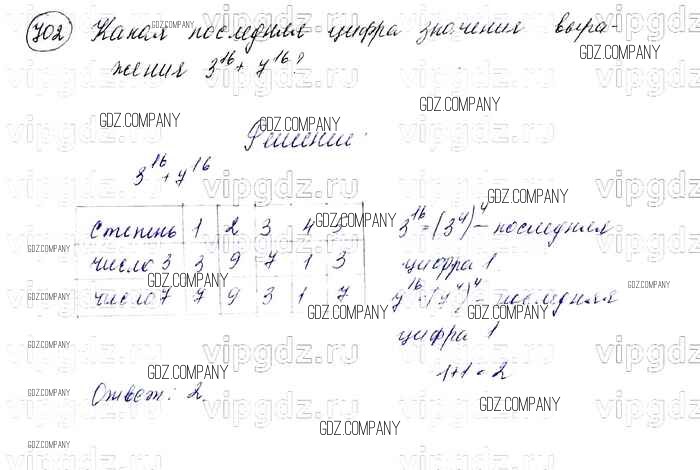 702 Какая последняя цифра значения выра-
жения 3^16 + 7^16?
Решение:
3^16 + 7^16
Степень 1 2 3 4 5
число 3 3 9 7 1 3
число 7 7 9 3 1 7
3^16 = (3^4)^4 – последняя
цифра 1
7^16 = (7^4)^4 – последняя
цифра 1
1+1=2
Ответ: 2.
GDZ.COMPANY
vipgdz.ru